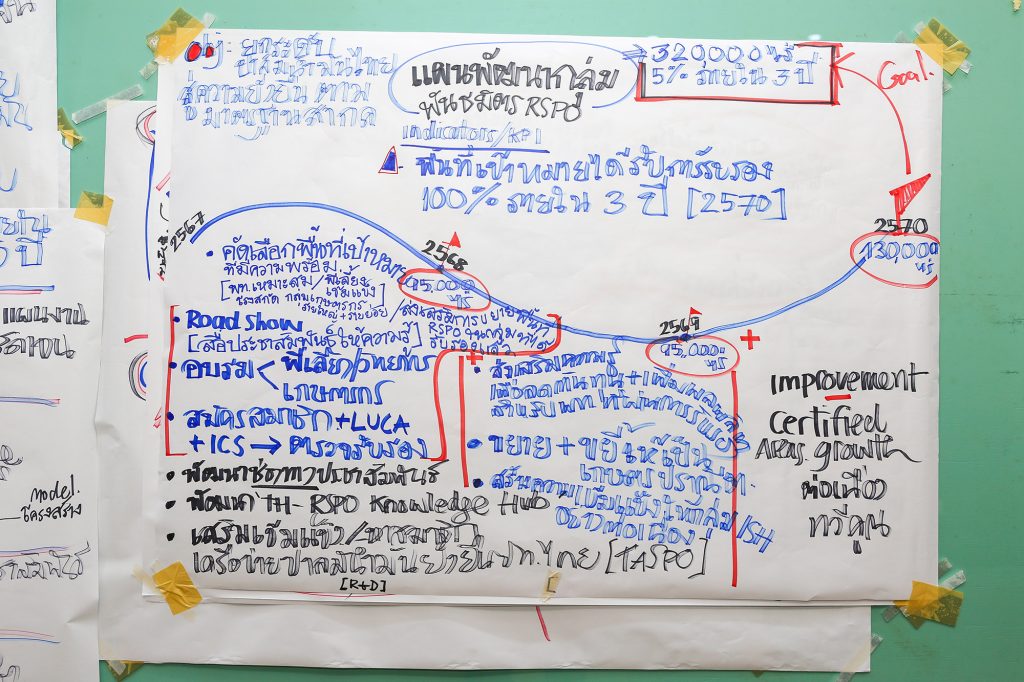 obj - ยกระดับ
ปาล์มน้ำมันไทย
สู่ความยั่งยืน ตาม
มาตรฐานสากล
แผนพัฒนากลุ่ม
พันธมิตร RSPO
⇒ 320,000 ไร่
5% ภายใน 3 ปี
Goal.
Indicators/KPI
พื้นที่เป้าหมายได้รับการรับรอง
100% ภายใน 3 ปี [2570]
2567
2568
95,000
ไร่
2569
95,000
ไร่
2570
130,000
ไร่
• คัดเลือกพื้นที่เป้าหมาย
ที่มีความพร้อม
[พท.เหมาะสม/พี่เลี้ยง
เข้มแข็ง]
• Road Show
[สื่อประชาสัมพันธ์ให้ความรู้]
• อบรม < พี่เลี้ยง/วิทยากร
เกษตรกร
• สมัครสมาชิก + LUCA
+ ICS → ตรวจรับรอง
• พัฒนาช่องทางประชาสัมพันธ์
• พัฒนา TH-RSPO Knowledge Hub
• เสริมเข้มแข็ง/
เครือข่ายปาล์มน้ำมันยั่งยืนปท.ไทย [TASPO]
[R&D]
+
• ส่งเสริมความรู้
เพื่อลดต้นทุน + เพิ่มผลผลิต
สำหรับ พท.ที่ผ่านการรับรอง
• ขยาย + ขยี้ให้เป็น
เกษตรปราณีต
• สร้างความเข้มแข็งให้กลุ่ม/SH
อย่างต่อเนื่อง
+
Improvement
Certified
Areas growth
ต่อเนื่อง
ทวีคูณ
แผนงาน
model.
โครงสร้าง